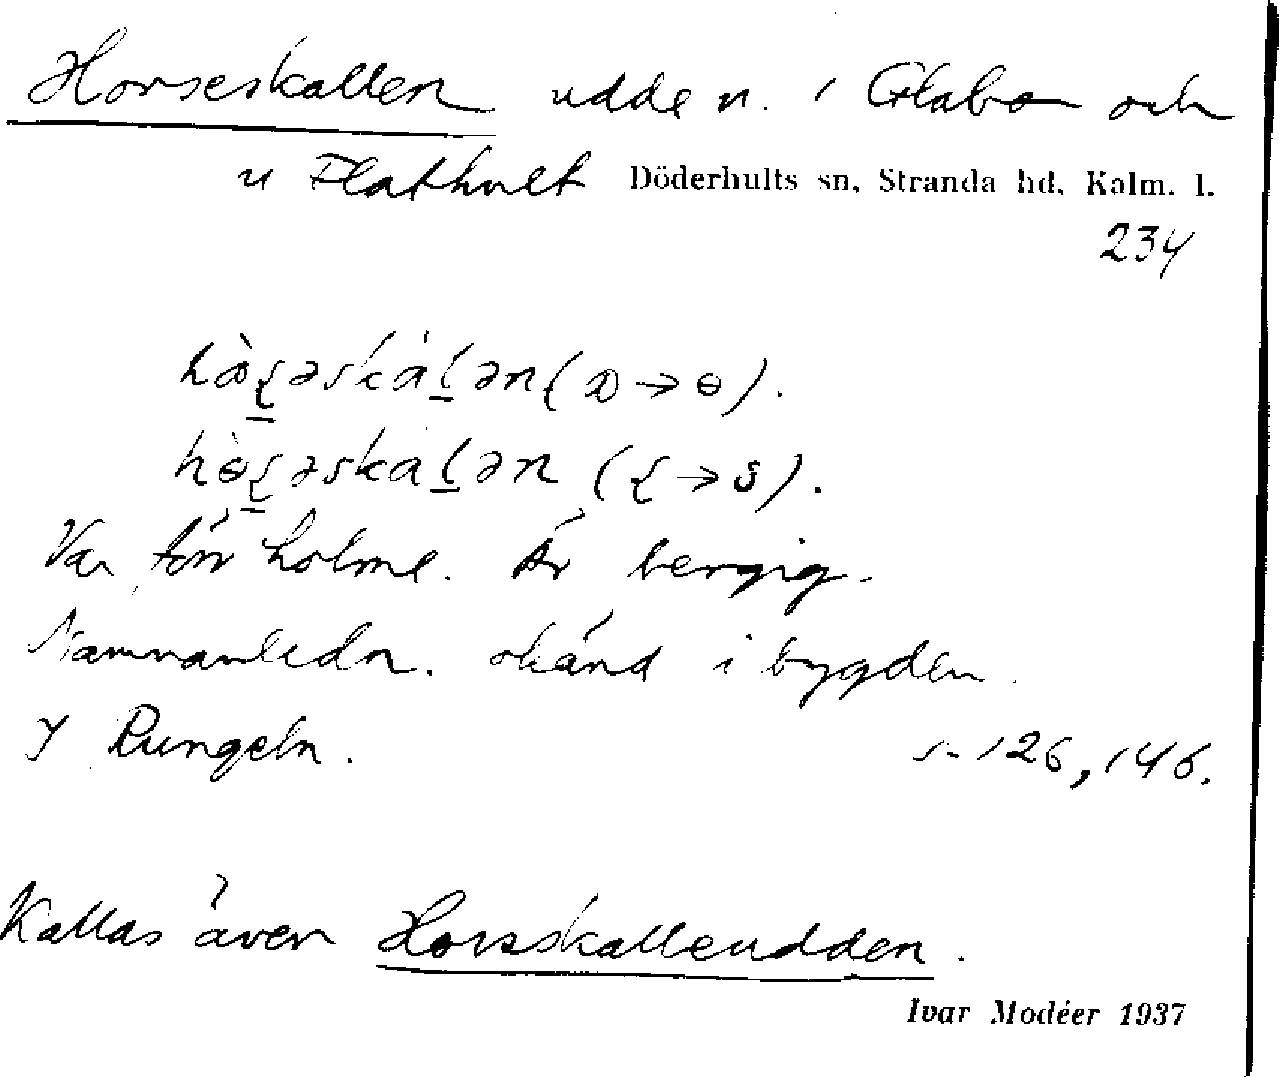 Horseskallen udde n. i Glabo och
n Flathult Döderhults sn, Stranda hd, Kalm. l.
234
Var förr holme. Är bergig.
Namnanledn. okänd i bygden.
Y Rungeln. s. 126, 146.
Kallas även Horsskalleudden.
Ivar Modéer 1937